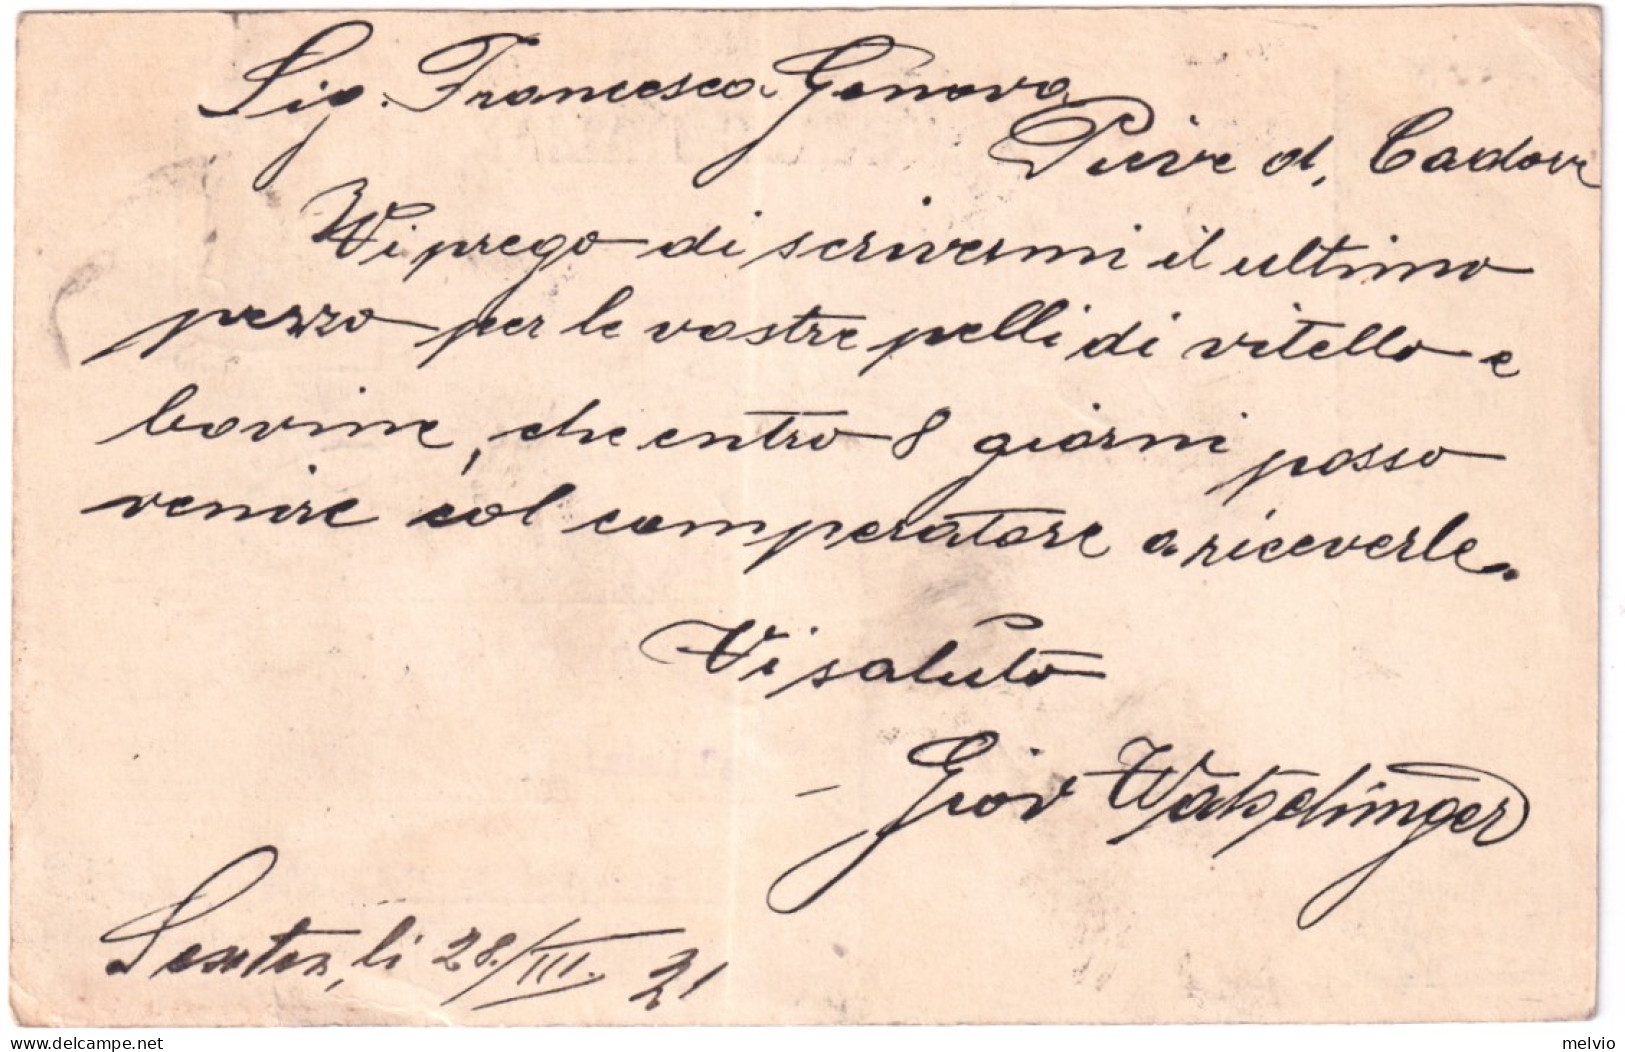 Sig. Francesco Genova
Pieve d. Cadore
Vi prego di scrivermi il ultimo
prezzo per le vostre pelli di vitello e
bovine, che entro 8 giorni posso
venire col comperatore a riceverle.
Vi saluto
- Giov Watschinger
li 28./III. 21
melvio